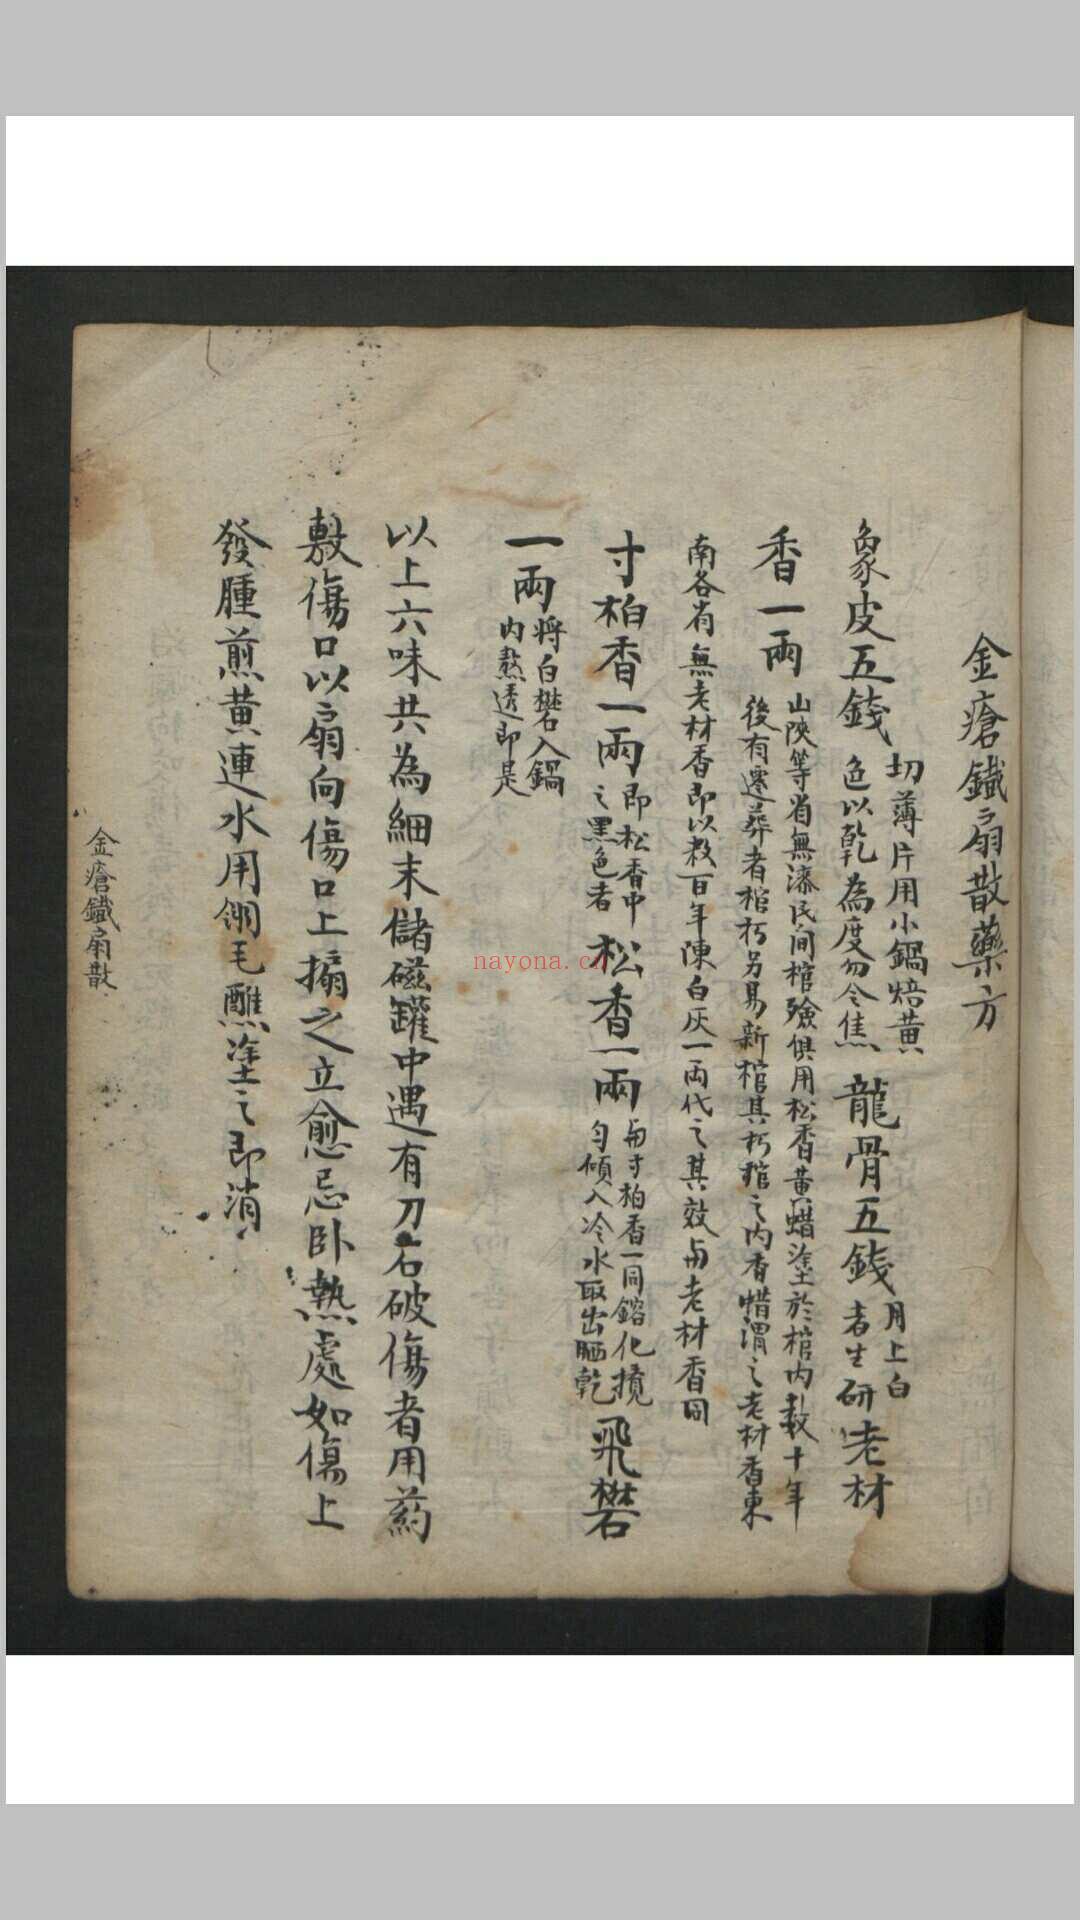 金瘡鐵扇散藥方
象皮五錢 切薄片用小鍋焙黃色以乾為度勿令焦 龍骨五錢 用上白者生研 老材
香一兩 山陝等省無漆民間棺殮俱用松香黃蜡塗於棺內数十年後有遷葬者棺朽另易新棺其朽棺之內香蜡謂之老材香東
南各省無老材香即以数百年陳白灰一兩代之其效与老材香同
寸柏香一兩 即松香中之黑色者 松香一兩 与寸柏香一同鎔化攪勻傾入冷水取出晒乾 飛礬
一兩 將白礬入鍋內熬透即是
以上六味共為細末儲磁罐中遇有刀石破傷者用药
敷傷口以扇向傷口上搧之立愈忌卧熱處如傷上
發腫煎黄連水用翎毛蘸塗之即消
金瘡鐵扇散
nayona.cn